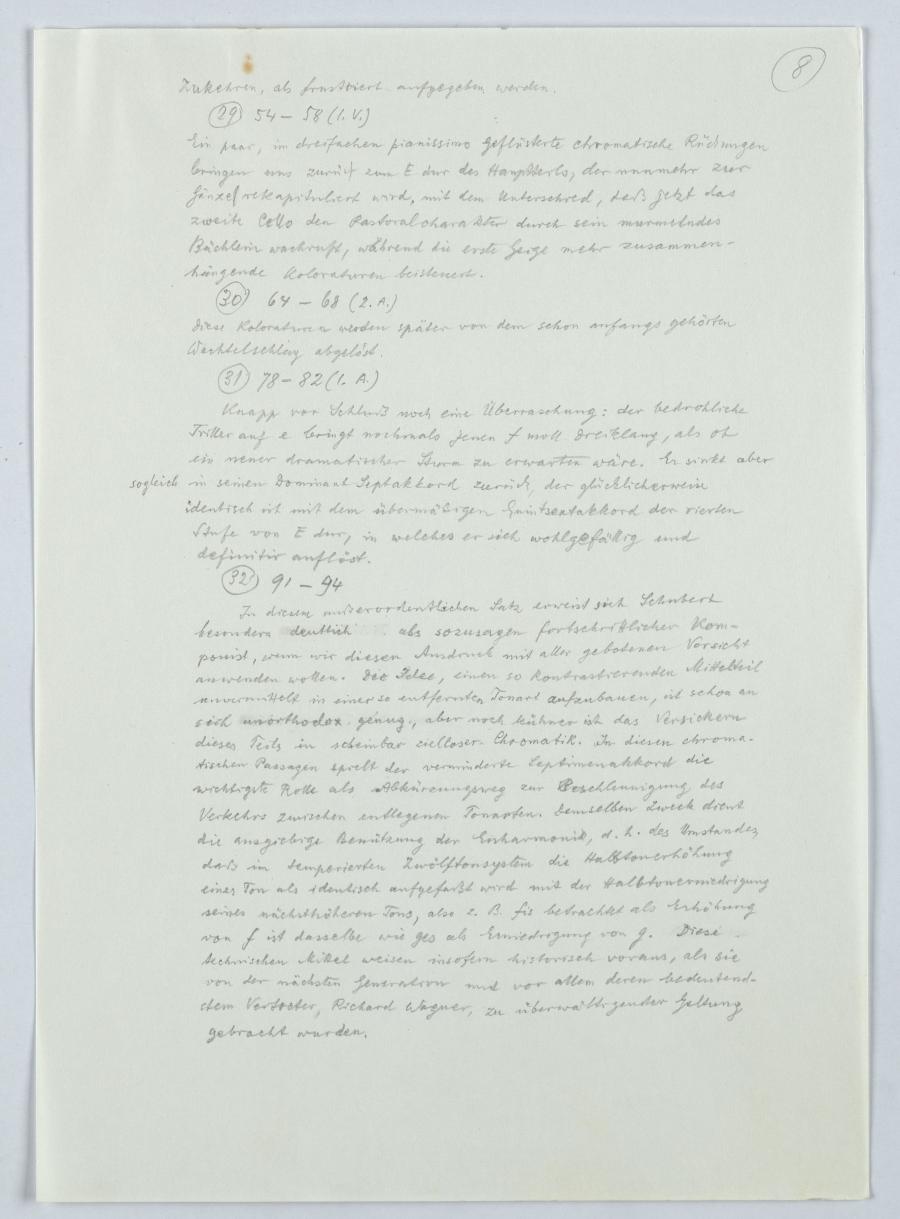 8
Zukehren, als frustriert aufgegeben werden.
29 54 – 58 (1. V.)
Ein paar, im dreifachen pianissimo geflüsterte chromatische Rückungen
bringen uns zurück zum E dur des Hauptteils, der nunmehr zur
Gänze rekapituliert wird, mit dem Unterschied, daß jetzt das
zweite Cello den Pastoralcharakter durch sein murmelndes
Bächlein wachruft, während die erste Geige mehr zusammen-
hängende Koloraturen beisteuert.
30 64 – 68 (2. A.)
Diese Koloraturen werden später von dem schon anfangs gehörten
Wachtelschlag abgelöst.
31 78 – 82 (1. A.)
Knapp vor Schluß noch eine Überraschung: der bedrohliche
Triller auf e bringt nochmals jenen f moll Dreiklang, als ob
ein neuer dramatischer Sturm zu erwarten wäre. Er sinkt aber
sogleich in seinen Dominant Septakkord zurück, der glücklicherweise
identisch ist mit dem übermäßigen Quintsextakkord der vierten
Stufe von E dur, in welches er sich wohlgefällig und
definitiv auflöst.
32 91 – 94
In diesem außerordentlichen Satz erweist sich Schubert
besonders deutlich als sozusagen fortschrittlicher Kom-
ponist, wenn wir diesen Ausdruck mit aller gebotenen Vorsicht
anwenden wollen. Die Idee, einen so kontrastierenden Mittelteil
unvermittelt in einer so entfernten Tonart aufzubauen, ist schon an
sich unorthodox genug, aber noch kühner ist das Versickern
dieses Teils in scheinbar zielloser Chromatik. In diesen chroma-
tischen Passagen spielt der verminderte Septimenakkord die
wichtigste Rolle als Abkürzungsweg zur Beschleunigung des
Verkehrs zwischen entlegenen Tonarten. Demselben Zweck dient
die ausgiebige Benützung der Enharmonik, d. h. des Umstandes
daß im temperierten Zwölftonsystem die Halbtonerhöhung
eines Ton als identisch aufgefaßt wird mit der Halbtonerniedrigung
seines nächsthöheren Tons, also z. B. fis betrachtet als Erhöhung
von f ist dasselbe wie ges als Erniedrigung von g. Diese
technischen Mittel weisen insofern historisch voraus, als sie
von der nächsten Generation und vor allem deren bedeutend-
stem Vertreter, Richard Wagner, zu überwältigender Geltung
gebracht wurden.